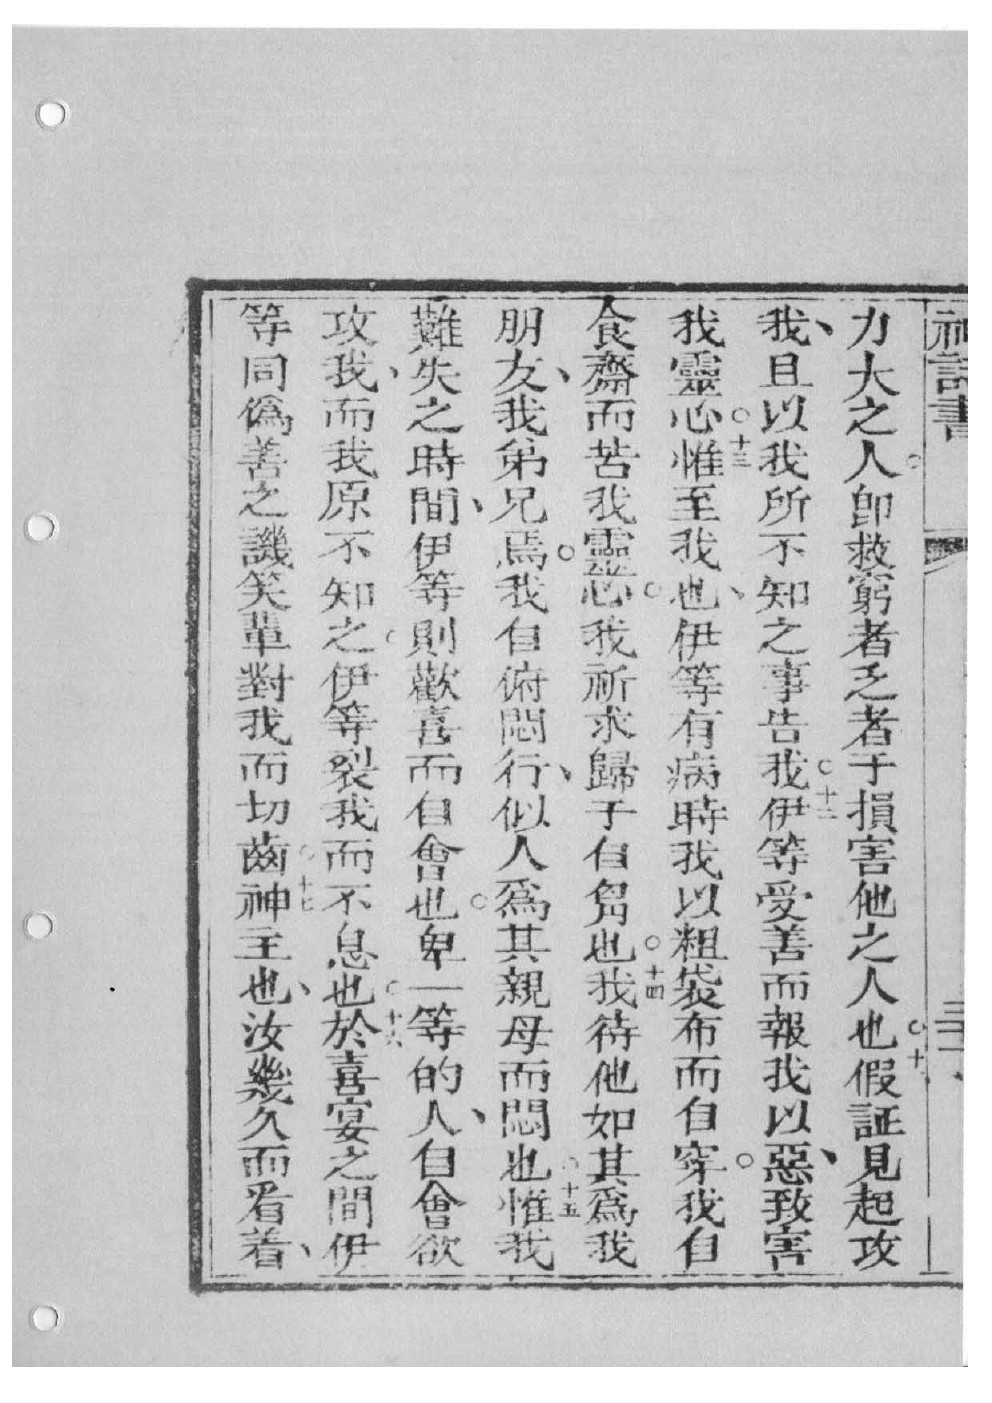 神詩書
力大之人。卽救窮者乏者于損害他之人也。十一假証見起攻
我、且以我所不知之事告我。十二伊等受善而報我以惡、致害
我靈心。十三惟至我也、伊等有病時我以粗袋布而自穿。我自
食齋而苦我靈心。我祈求歸于自胷也。十四我待他如其爲我
朋友、我弟兄焉。我自俯悶行、似人爲其親母而悶也。十五惟我
難失之時間、伊等則歡喜而自會也。卑一等的人、自會欲
攻我、而我原不知之。伊等裂我而不息也。十六於喜宴之間伊
等同僞善之譏笑輩對我而切齒。十七神主也、汝幾久而看着、